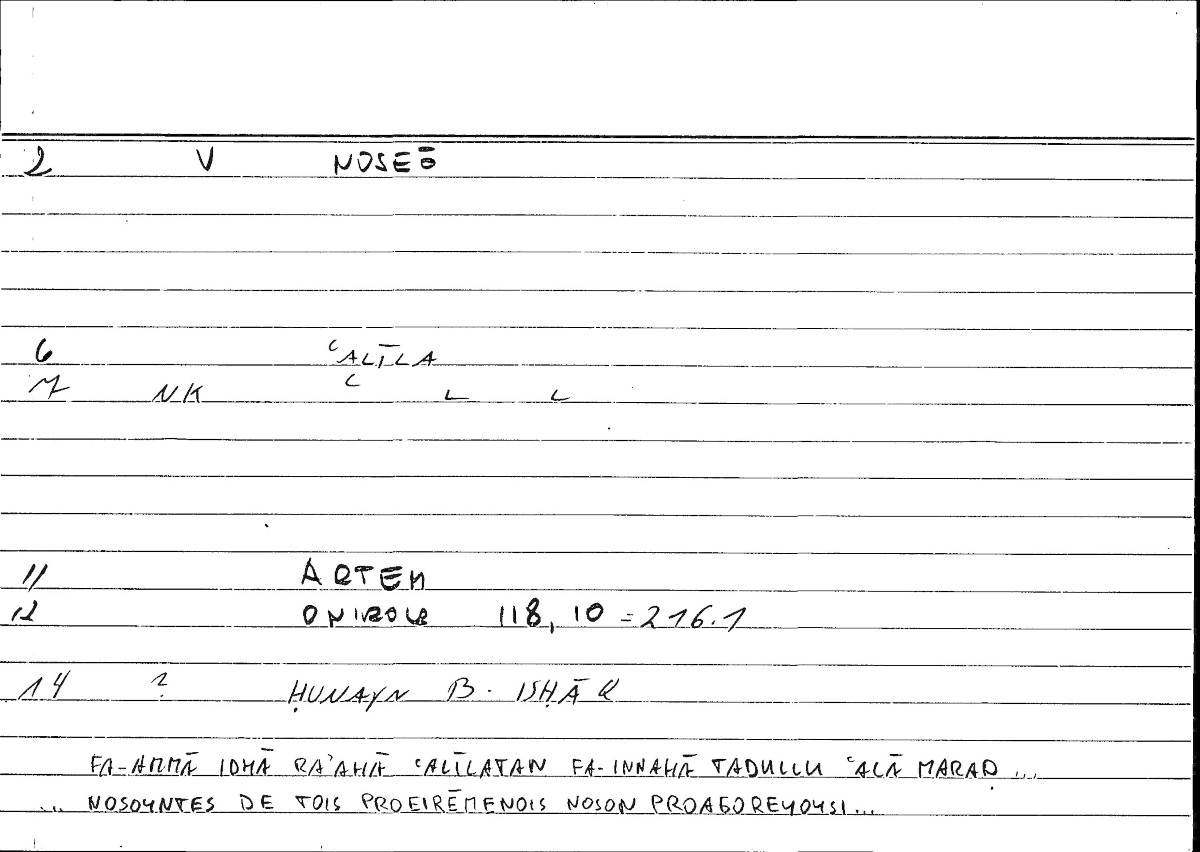 2 V NOSEŌ
6 ʿALĪLA
7 NK ʿ L L
11 ARTEM
12 ONIROCR 118, 10 = 216.1
14 ? ḤUNAYN B. ISḤĀQ
FA-AMMĀ IDHĀ RA'AHĀ ʿALĪLATAN FA-INNAHĀ TADULLU ʿALĀ MARAḌ ...
... NOSOYNTES DE TOIS PROEIRĒMENOIS NOSON PROAGOREYOYSI ...